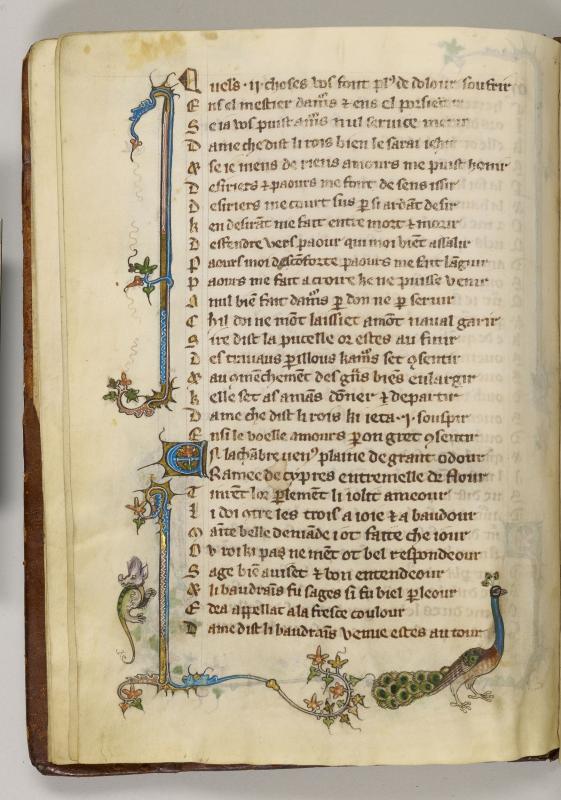 Q uels · ij · choses vos font pl' de dolour soufrir
E ns el mestier dam's ⁊ ens el porsieuir
S e ia vos puist am's nul seruice merir
D ame che dist li rois bien le sarai iehir
& se ie mens de riens amours me puist honir
D esiriers ⁊ paours me font de sens issir
D esiriers me court sus p̲ si ardāt desir
k en desirāt me fait entre mort ⁊ morir
D effendre vers paour qui moi biēt assalir
P aours moi descōforte paours me fait lāguir
P aours me fait acroire ke ne puisse venir
A nul biē fait dam's p̲ don ne p̲ seruir
C hil doi ne mōt laissiet amōt naual garir
S ire dist la pucelle or estes au finir
D es trauaus p̲illous kam's set ꝯsentir
& au ꝯmēchemēt des gñs biēs enlargir
k elle set as amās dōner ⁊ departir
D ame che dist li rois ki ieta · j · souspir
E nsi le voelle amours p̲ on gret ꝯsentir
E N la chābre uen' plaine de grant odour
Ramee de cypres entremelle de flour
T inrēt lor p̲lemēt li iolit ameour
L i doi ꝯtre les trois a ioie ⁊ a baudour
M aīte belle demāde i ot faite che iour
O v roi ki pas ne mēt ot bel respondeour
S age biē auiset ⁊ bon entendeour
& li baudraīs fu sages si fu biel p̲leour
E dea appellat a la fresce coulour
D ame dist li baudraīs venue estes au tour